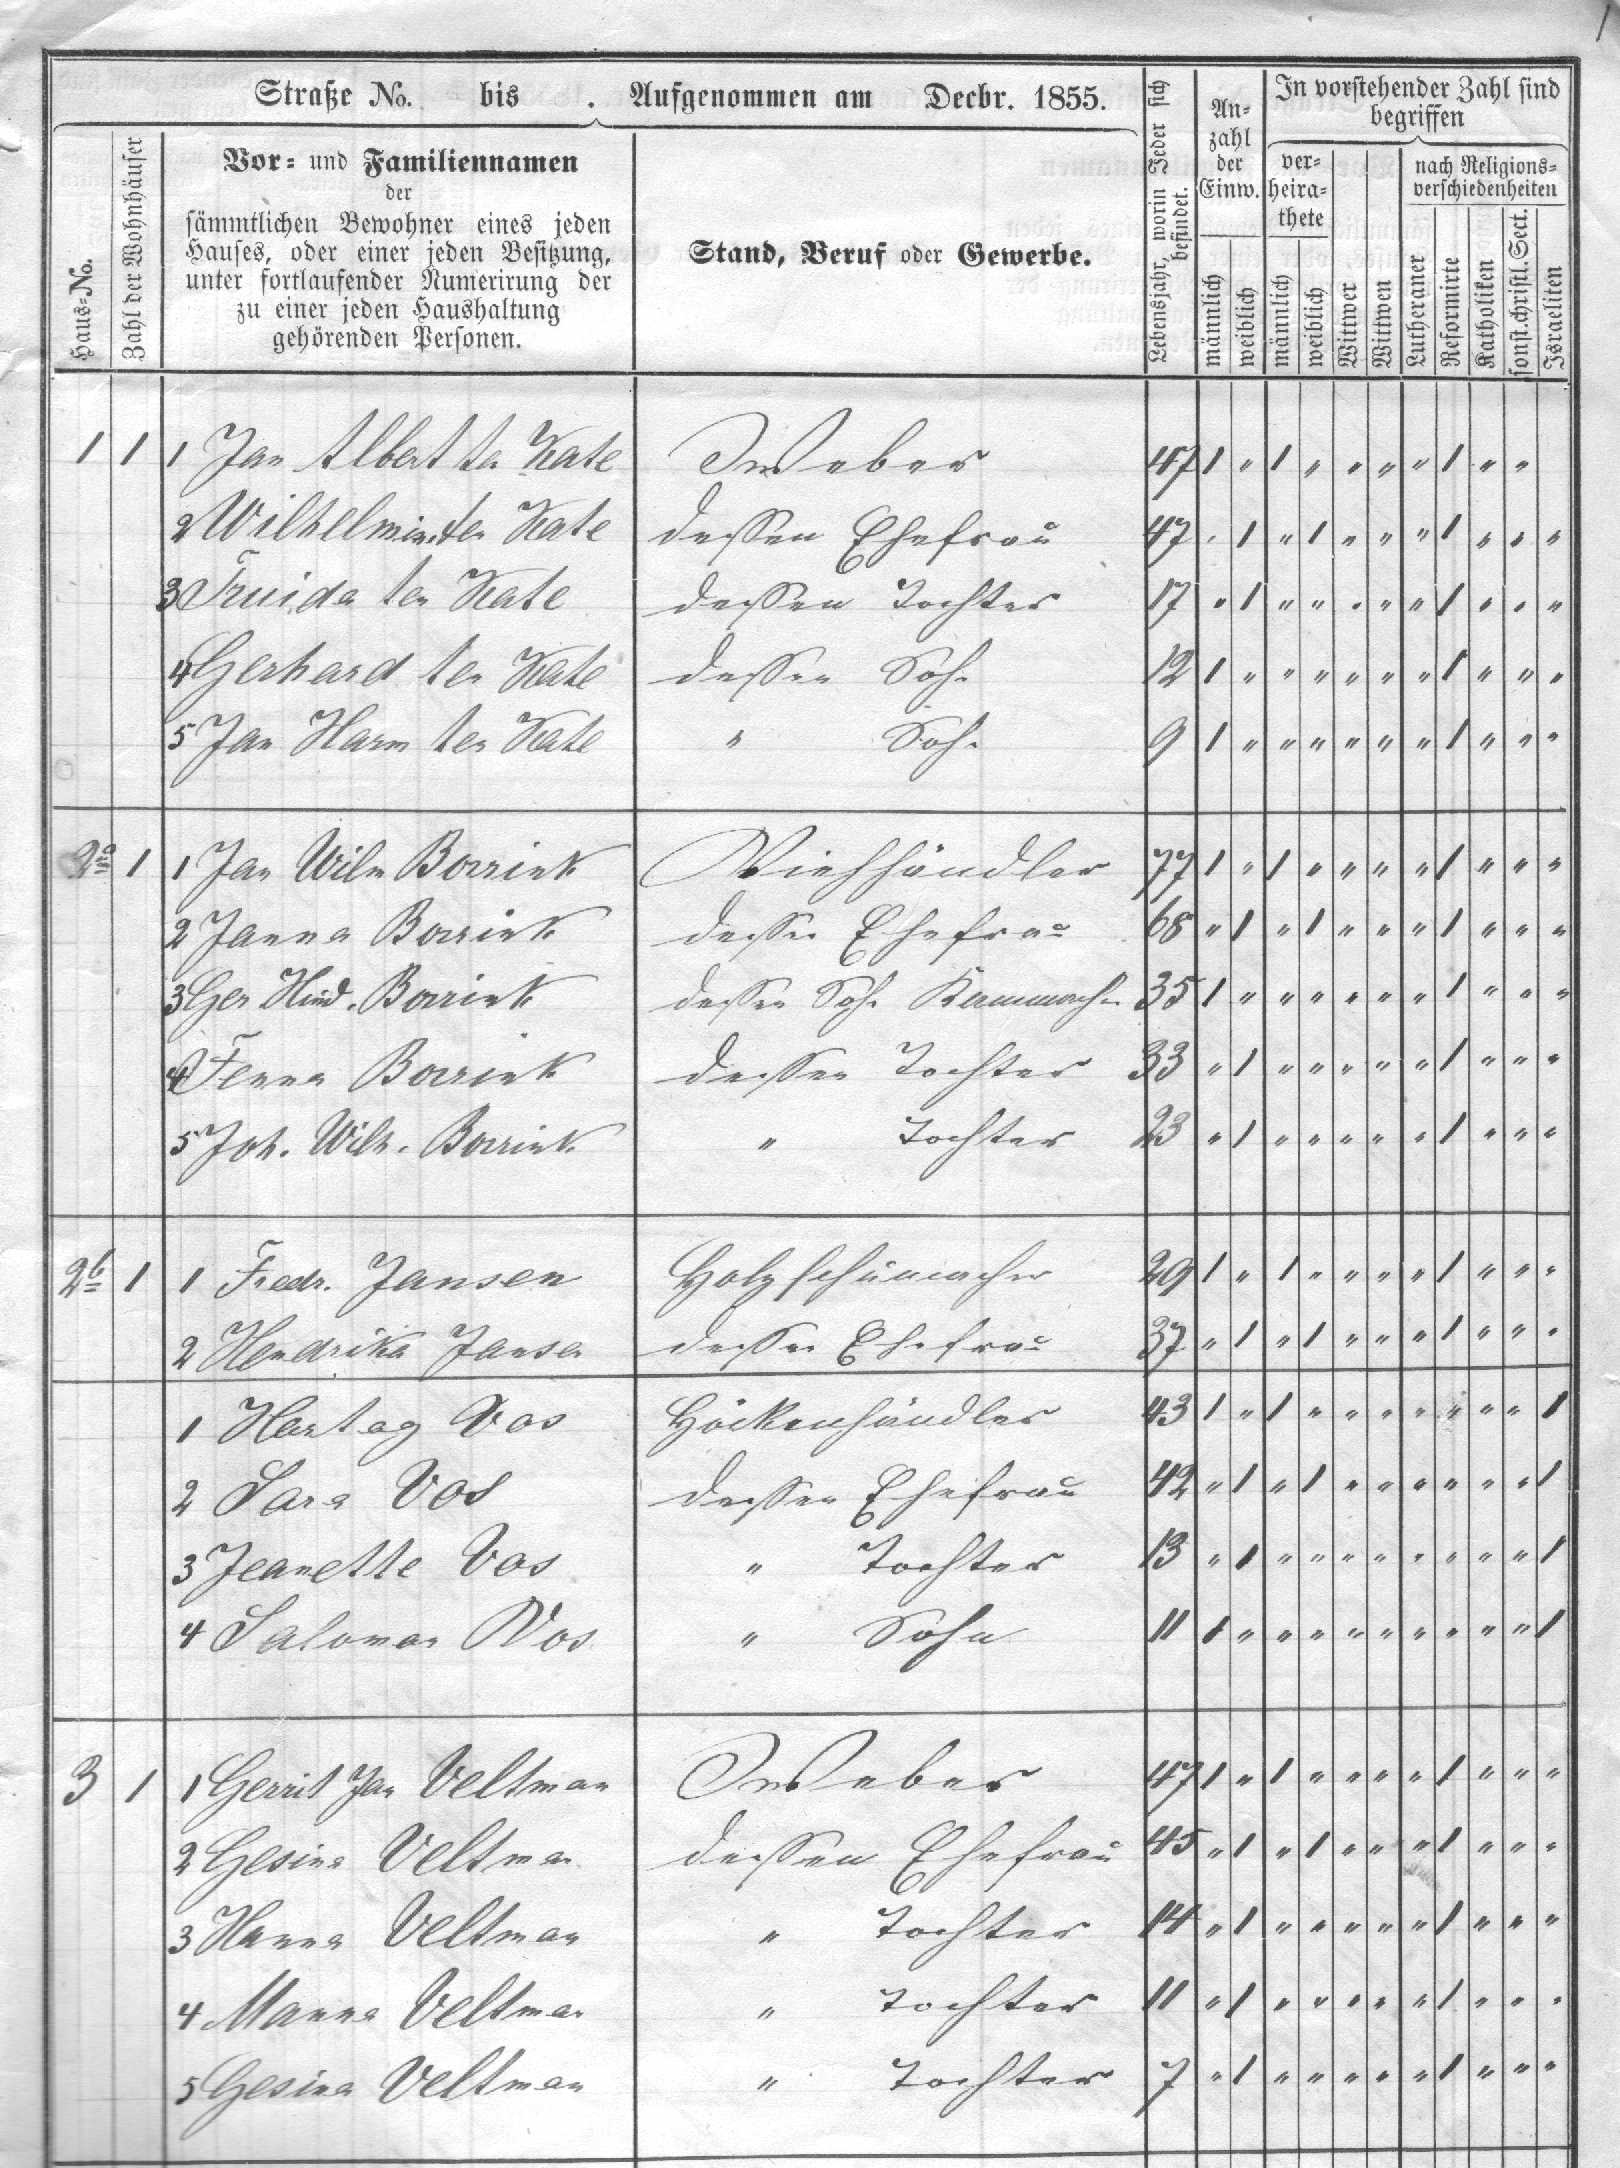 1
Straße No. bis . Aufgenommen am Decbr. 1855.
Haus=No.
Zahl der Wohnhäuser
Vor= und Familiennamen
der
sämmtlichen Bewohner eines jeden
Hauses, oder einer jeden Besitzung,
unter fortlaufender Numerirung der
zu einer jeden Haushaltung
gehörenden Personen.
Stand, Beruf oder Gewerbe.
Lebensjahr, worin Jeder sich
befindet.
An=
zahl
der
Einw.
männlich
weiblich
In vorstehender Zahl sind
begriffen
ver=
heira=
thete
männlich
weiblich
Wittwer
Wittwen
nach Religions=
verschiedenheiten
Lutheraner
Reformirte
Katholiken
sonst.christl.Sect.
Israeliten
1 1 1 Jan Albert ter Kate Weber 47 1 " 1 " " " " 1 " "
2 Wilhelmin ter Kate dessen Ehefrau 47 " 1 " 1 " " " 1 " " "
3 Truida ter Kate dessen Tochter 17 " 1 " " " " " 1 " " "
4 Gerhard ter Kate dessen Sohn 12 1 " " " " " " 1 " " "
5 Jan Harm ter Kate " Sohn 9 1 " " " " " " 1 " " "
2a 1 1 Jan Wilm Borrink Viehhändler 77 1 " 1 " " " " 1 " " "
2 Janna Borrink dessen Ehefrau 68 " 1 " 1 " " " 1 " " "
3 Ger Hind. Borrink dessen Sohn 35 1 " " " " " " 1 " " "
4 Fenna Borrink dessen Tochter 33 " 1 " " " " " 1 " " "
5 Joh. Wilh. Borrink " Tochter 23 " 1 " " " " " 1 " " "
2b 1 1 Fredr. Jansen Holzschumacher 29 1 " 1 " " " " 1 " " "
2 Hendrika Jansen dessen Ehefrau 37 " 1 " 1 " " " 1 " " "
1 Hartog Vos Höckenhändler 43 1 " 1 " " " " " " " 1
2 Sara Vos dessen Ehefrau 42 " 1 " 1 " " " " " " 1
3 Jeanette Vos " Tochter 13 " 1 " " " " " " " " 1
4 Saloman Vos " Sohn 11 1 " " " " " " " " " 1
3 1 1 Gerrit Jan Veltman Weber 47 1 " 1 " " " " 1 " " "
2 Gesina Veltman dessen Ehefrau 45 " 1 " 1 " " " 1 " " "
3 Hanna Veltman " Tochter 14 " 1 " " " " " 1 " " "
4 Manna Veltman " Tochter 11 " 1 " " " " " 1 " " "
5 Gesina Veltman " Tochter 7 " 1 " " " " " 1 " " "